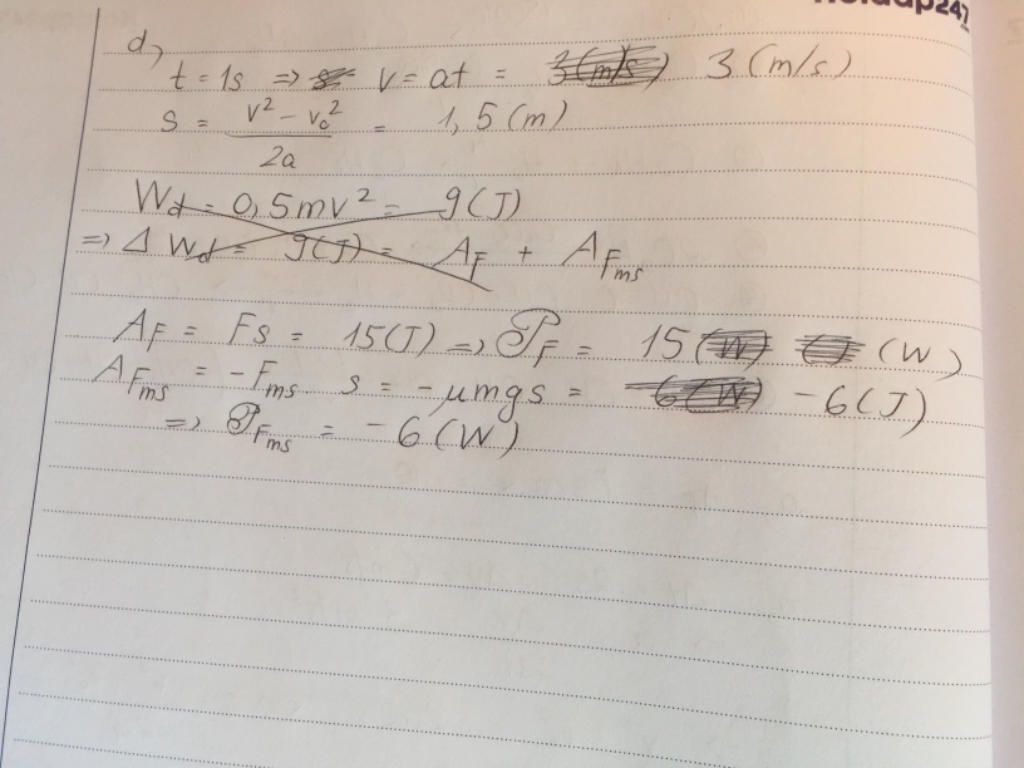 Hoidap247
d)
t = 1s => v = at = 3 (m/s) 3 (m/s)
s = (v² - v₀²) / 2a = 1,5 (m)
Wđ = 0,5mv² = 9 (J)
=> Δ Wđ = 9 (J) = A_F + A_Fms
A_F = Fs = 15 (J) => 𝒫_F = 15 (W) (W)
A_Fms = - Fms . s = - μmgs = -6 (W) - 6 (J)
=> 𝒫_Fms = - 6 (W)